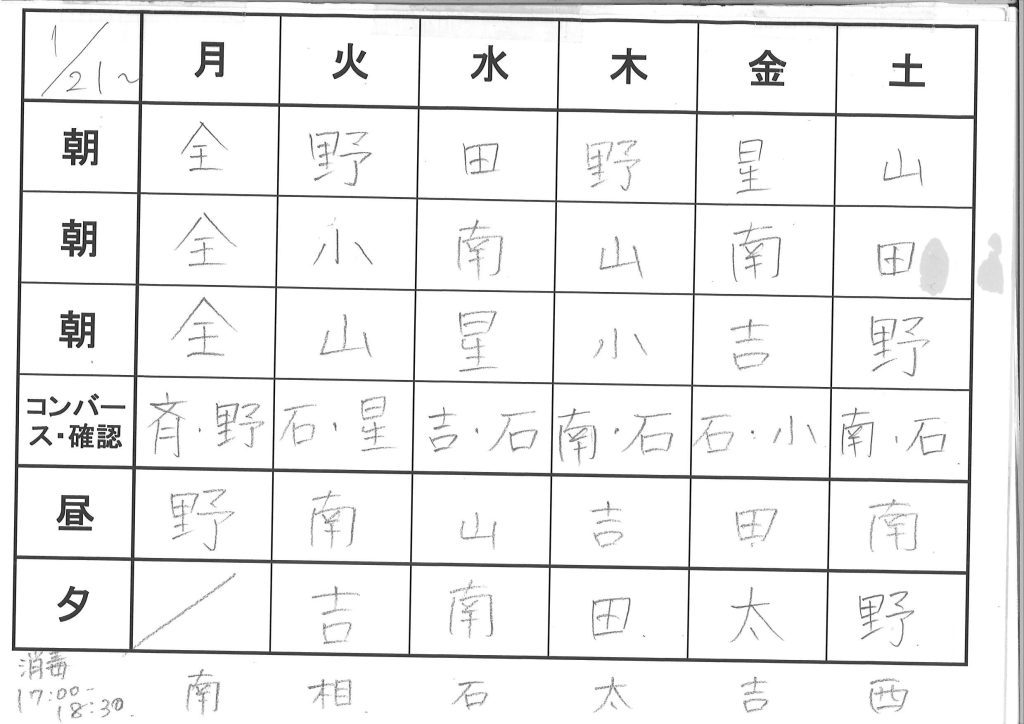 1/21~ 月 火 水 木 金 土
朝 全 野 田 野 星 山
朝 全 小 南 山 南 田
朝 全 山 星 小 吉 野
コンバー
ス・確認 斉・野 石・星 吉・石 南・石 石・小 南・石
昼 野 南 山 吉 田 南
夕 / 吉 南 田 太 野
消毒
17:00-
18:30 南 相 石 太 吉 西